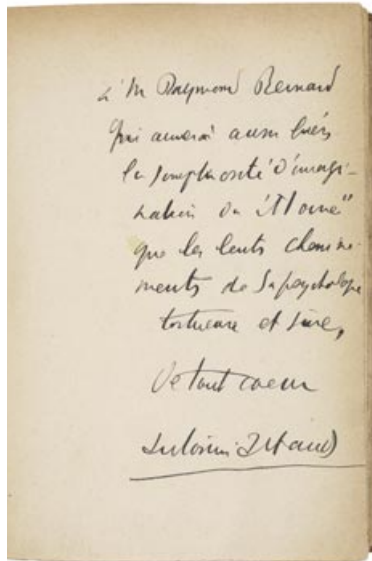 à M Raymond Bernard
qui aimera aussi bien
la somptuosité d'imagi-
nation du "Moine"
que les lents chemine-
ments de sa psychologie
tortueuse et sûre,
De tout coeur
Antonin Artaud